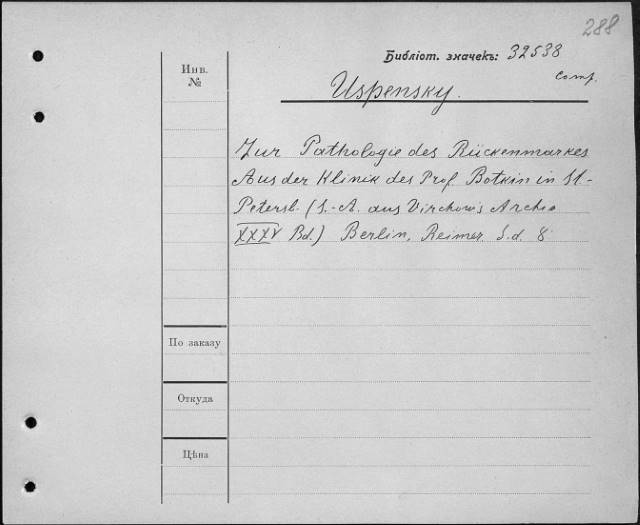 288
Библіот. значекъ: 32538
Comp.
Инв.
№
Uspensky.
Zur Pathologie des Rückenmarkes
Aus der Klinik des Prof. Botkin in St.-
Petersb. (S.-A. aus Virchow's Archiv
XXXV Bd.) Berlin, Reimer. S.d. 8.
По заказу
Откуда
Цѣна